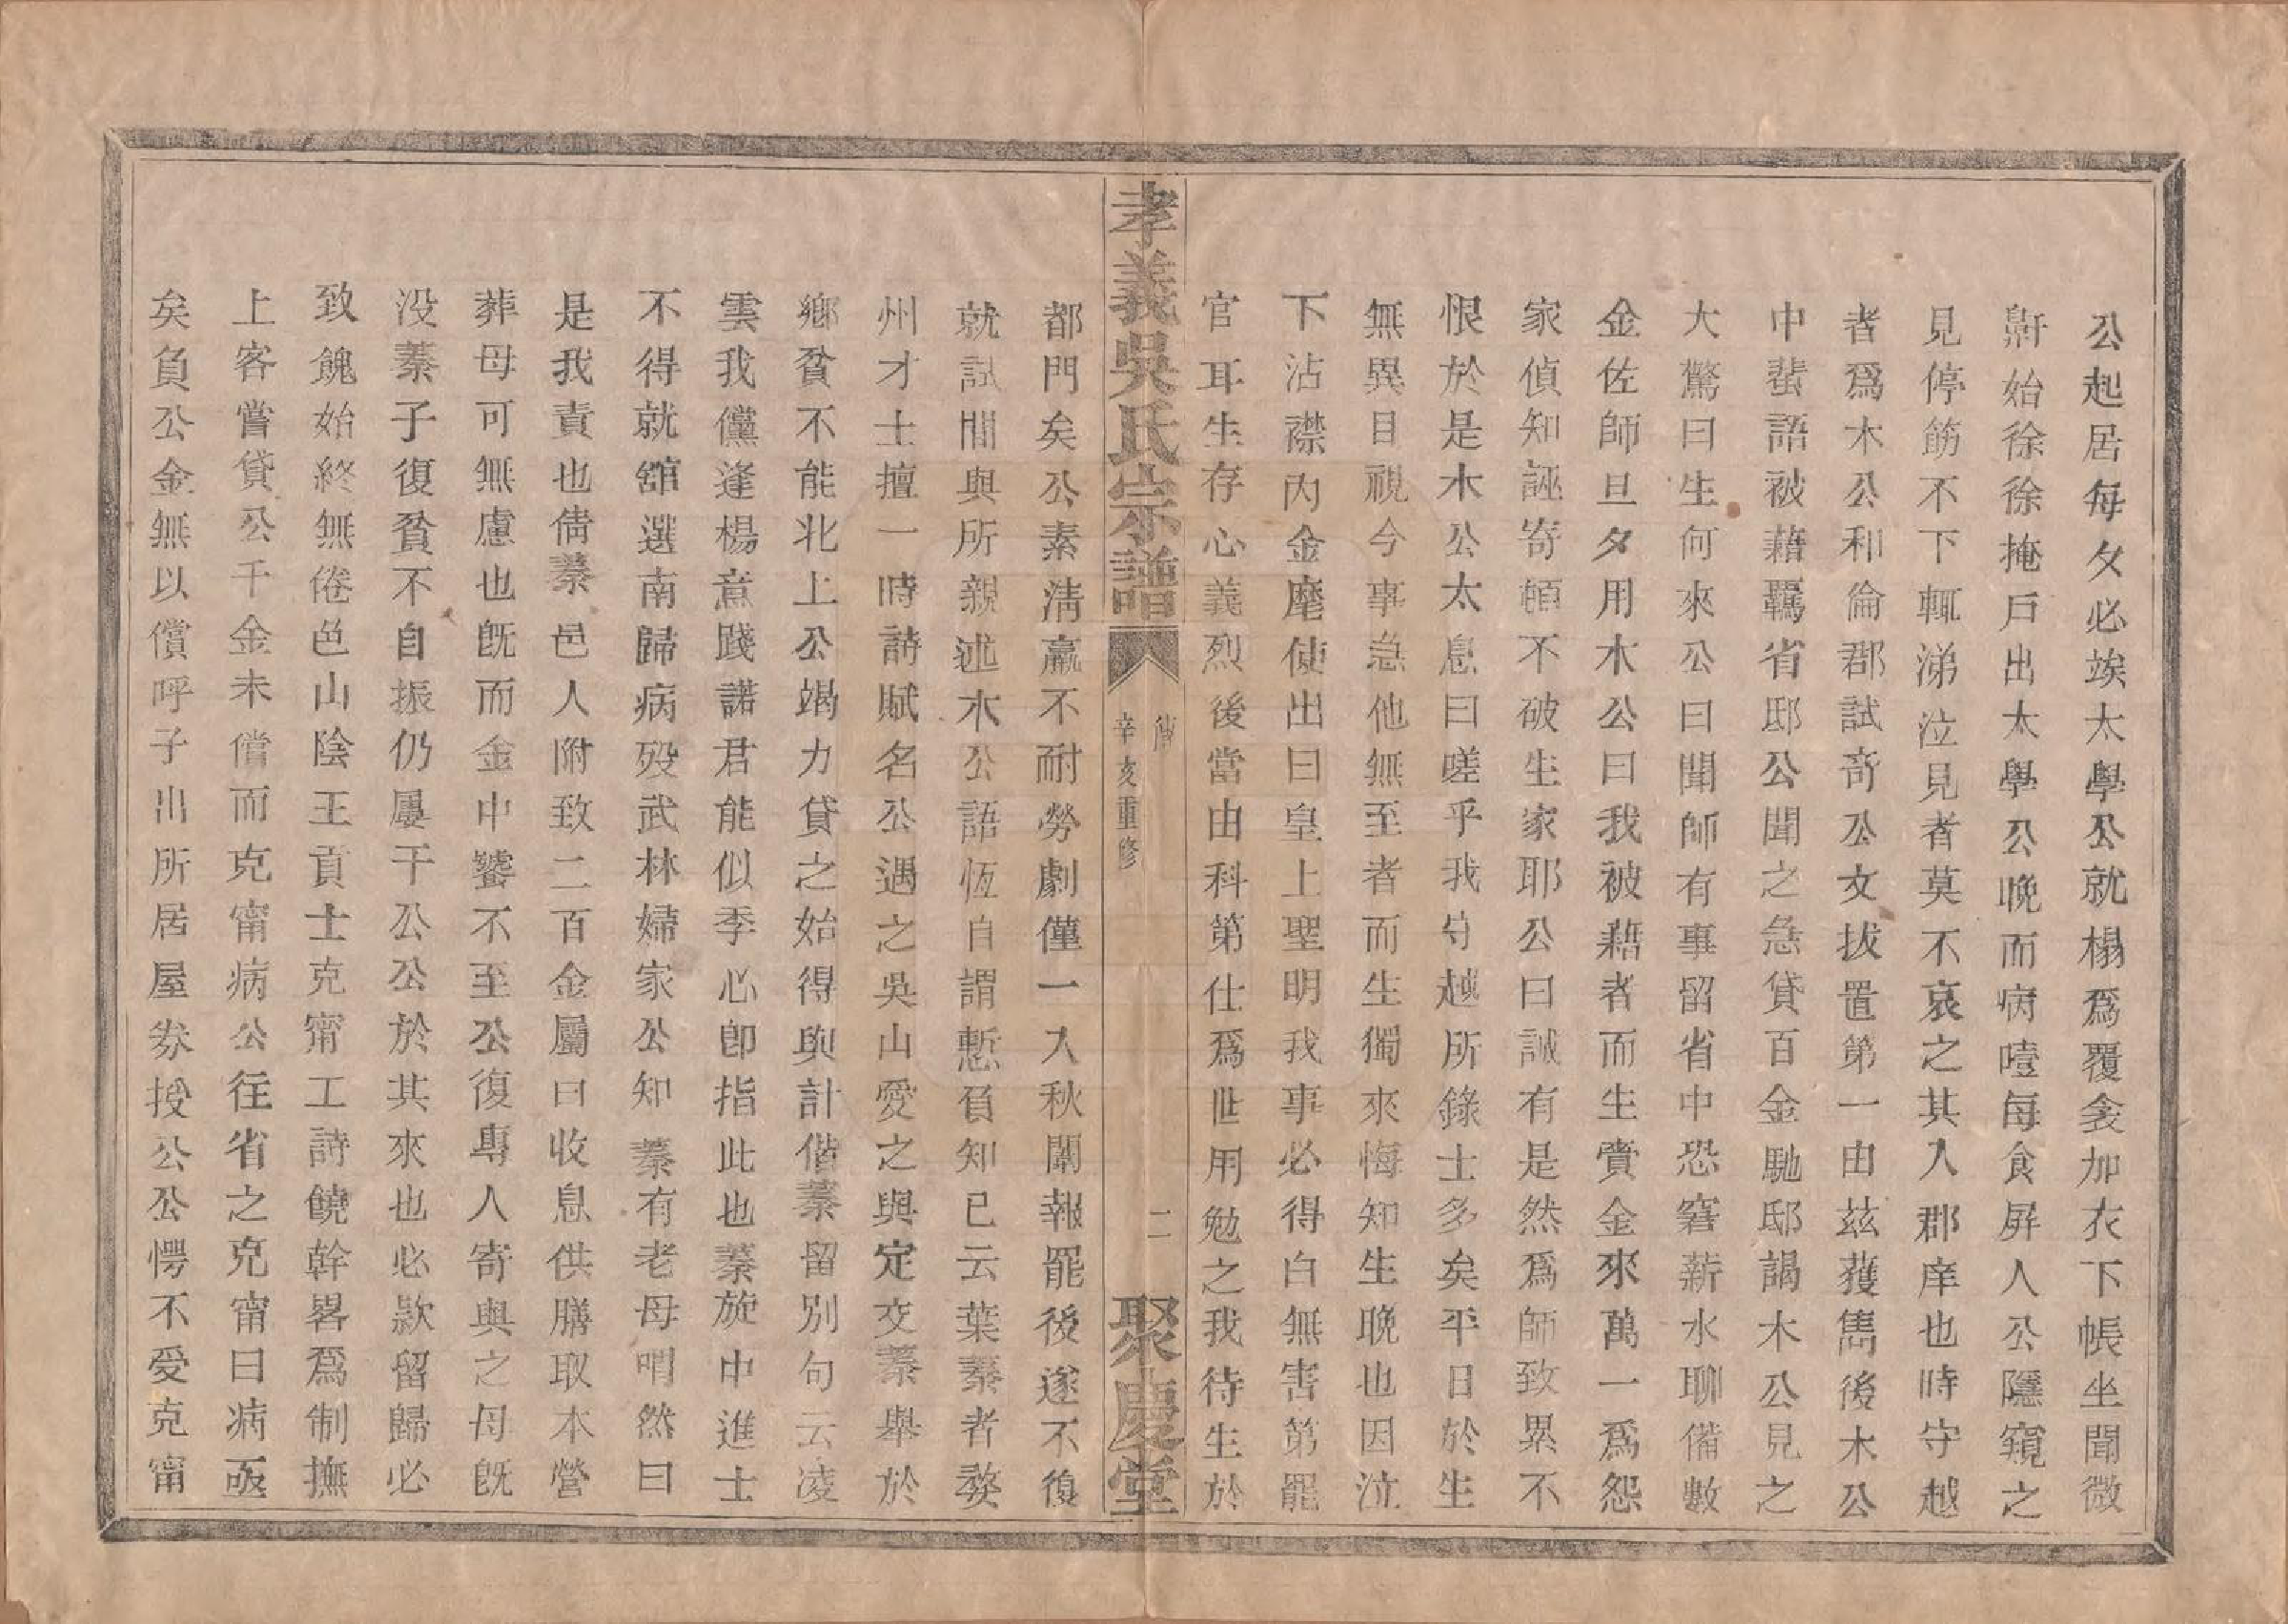 公起居每夕必竢太學公就榻爲覆衾加衣下帳坐聞微
鼾始徐徐掩戶出太學公晚而病噎每食屛人公隱窺之
見停筯不下輒涕泣見者莫不哀之其入郡庠也時守越
者爲木公和倫郡試奇公文拔置第一由茲獲雋後木公
中蜚語被藉羈省邸公聞之急貸百金馳邸謁木公見之
大驚曰生何來公曰聞師有事留省中恐窘薪水聊備數
金佐師旦夕用木公曰我被藉者而生賫金來萬一爲怨
家偵知誣寄頓不破生家耶公曰誠有是然爲師致累不
恨於是木公太息曰嗟乎我守越所錄士多矣平日於生
無異目視今事急他無至者而生獨來悔知生晚也因泣
下沾襟內金麾使出曰皇上聖明我事必得白無害第罷
官耳生存心義烈後當由科第仕爲世用勉之我待生於
孝義吳氏宗譜
傳
辛亥重修
二
聚慶堂
都門矣公素淸羸不耐勞劇僅一入秋闈報罷後遂不復
就試閒與所親述木公語恆自謂慙負知已云葉蓁者婺
州才士擅一時詩賦名公遇之吳山愛之與定交蓁舉於
鄉貧不能北上公竭力貸之始得與計偕蓁留別句云凌
雲我儻逢楊意踐諾君能似季必卽指此也蓁旋中進士
不得就舘選南歸病歿武林婦家公知蓁有老母喟然曰
是我責也倩蓁邑人附致二百金屬曰收息供膳取本營
葬母可無慮也旣而金中饕不至公復專人寄與之母旣
没蓁子復貧不自振仍屢干公公於其來也必款留歸必
致餽始終無倦邑山陰王貢士克甯工詩饒幹畧爲制撫
上客嘗貸公千金未償而克甯病公往省之克甯曰病亟
矣負公金無以償呼子出所居屋劵授公公愕不受克甯